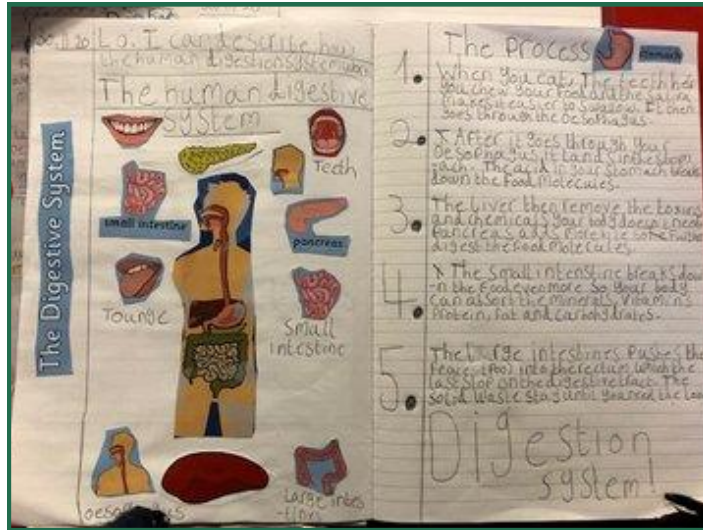 30.11.20 L.o. I can describe how
the human digestion system work
The human digestive
system
The Digestive System
Teeth
small intestine
pancreas
Tounge
Small
intestine
oesophagus
Large intes
-tines
The Process
stomach
1. When you eat, The teeth help
you chew your food and the saliva
makes it easier to swallow. It then
goes through the oesophagus.
2. After it goes through your
oesophagus, it lands in the stom
ach. The acid in your stomach break
down the food molecules.
3. The liver then remove the toxins
and chemicals your body doesn't need
Pancreas adds more to further
digest the food molecules.
4. The small intenstine breaks dow
-n the food even more so your body
can absorb the minerals, vitamins
Protein, fat and carbohydrates.
5. The large intestines pushes the
(Poo) into the rectum which the
last stop on the digestive tract. The
solid waste stay until you need the Loo
Digestion
system!